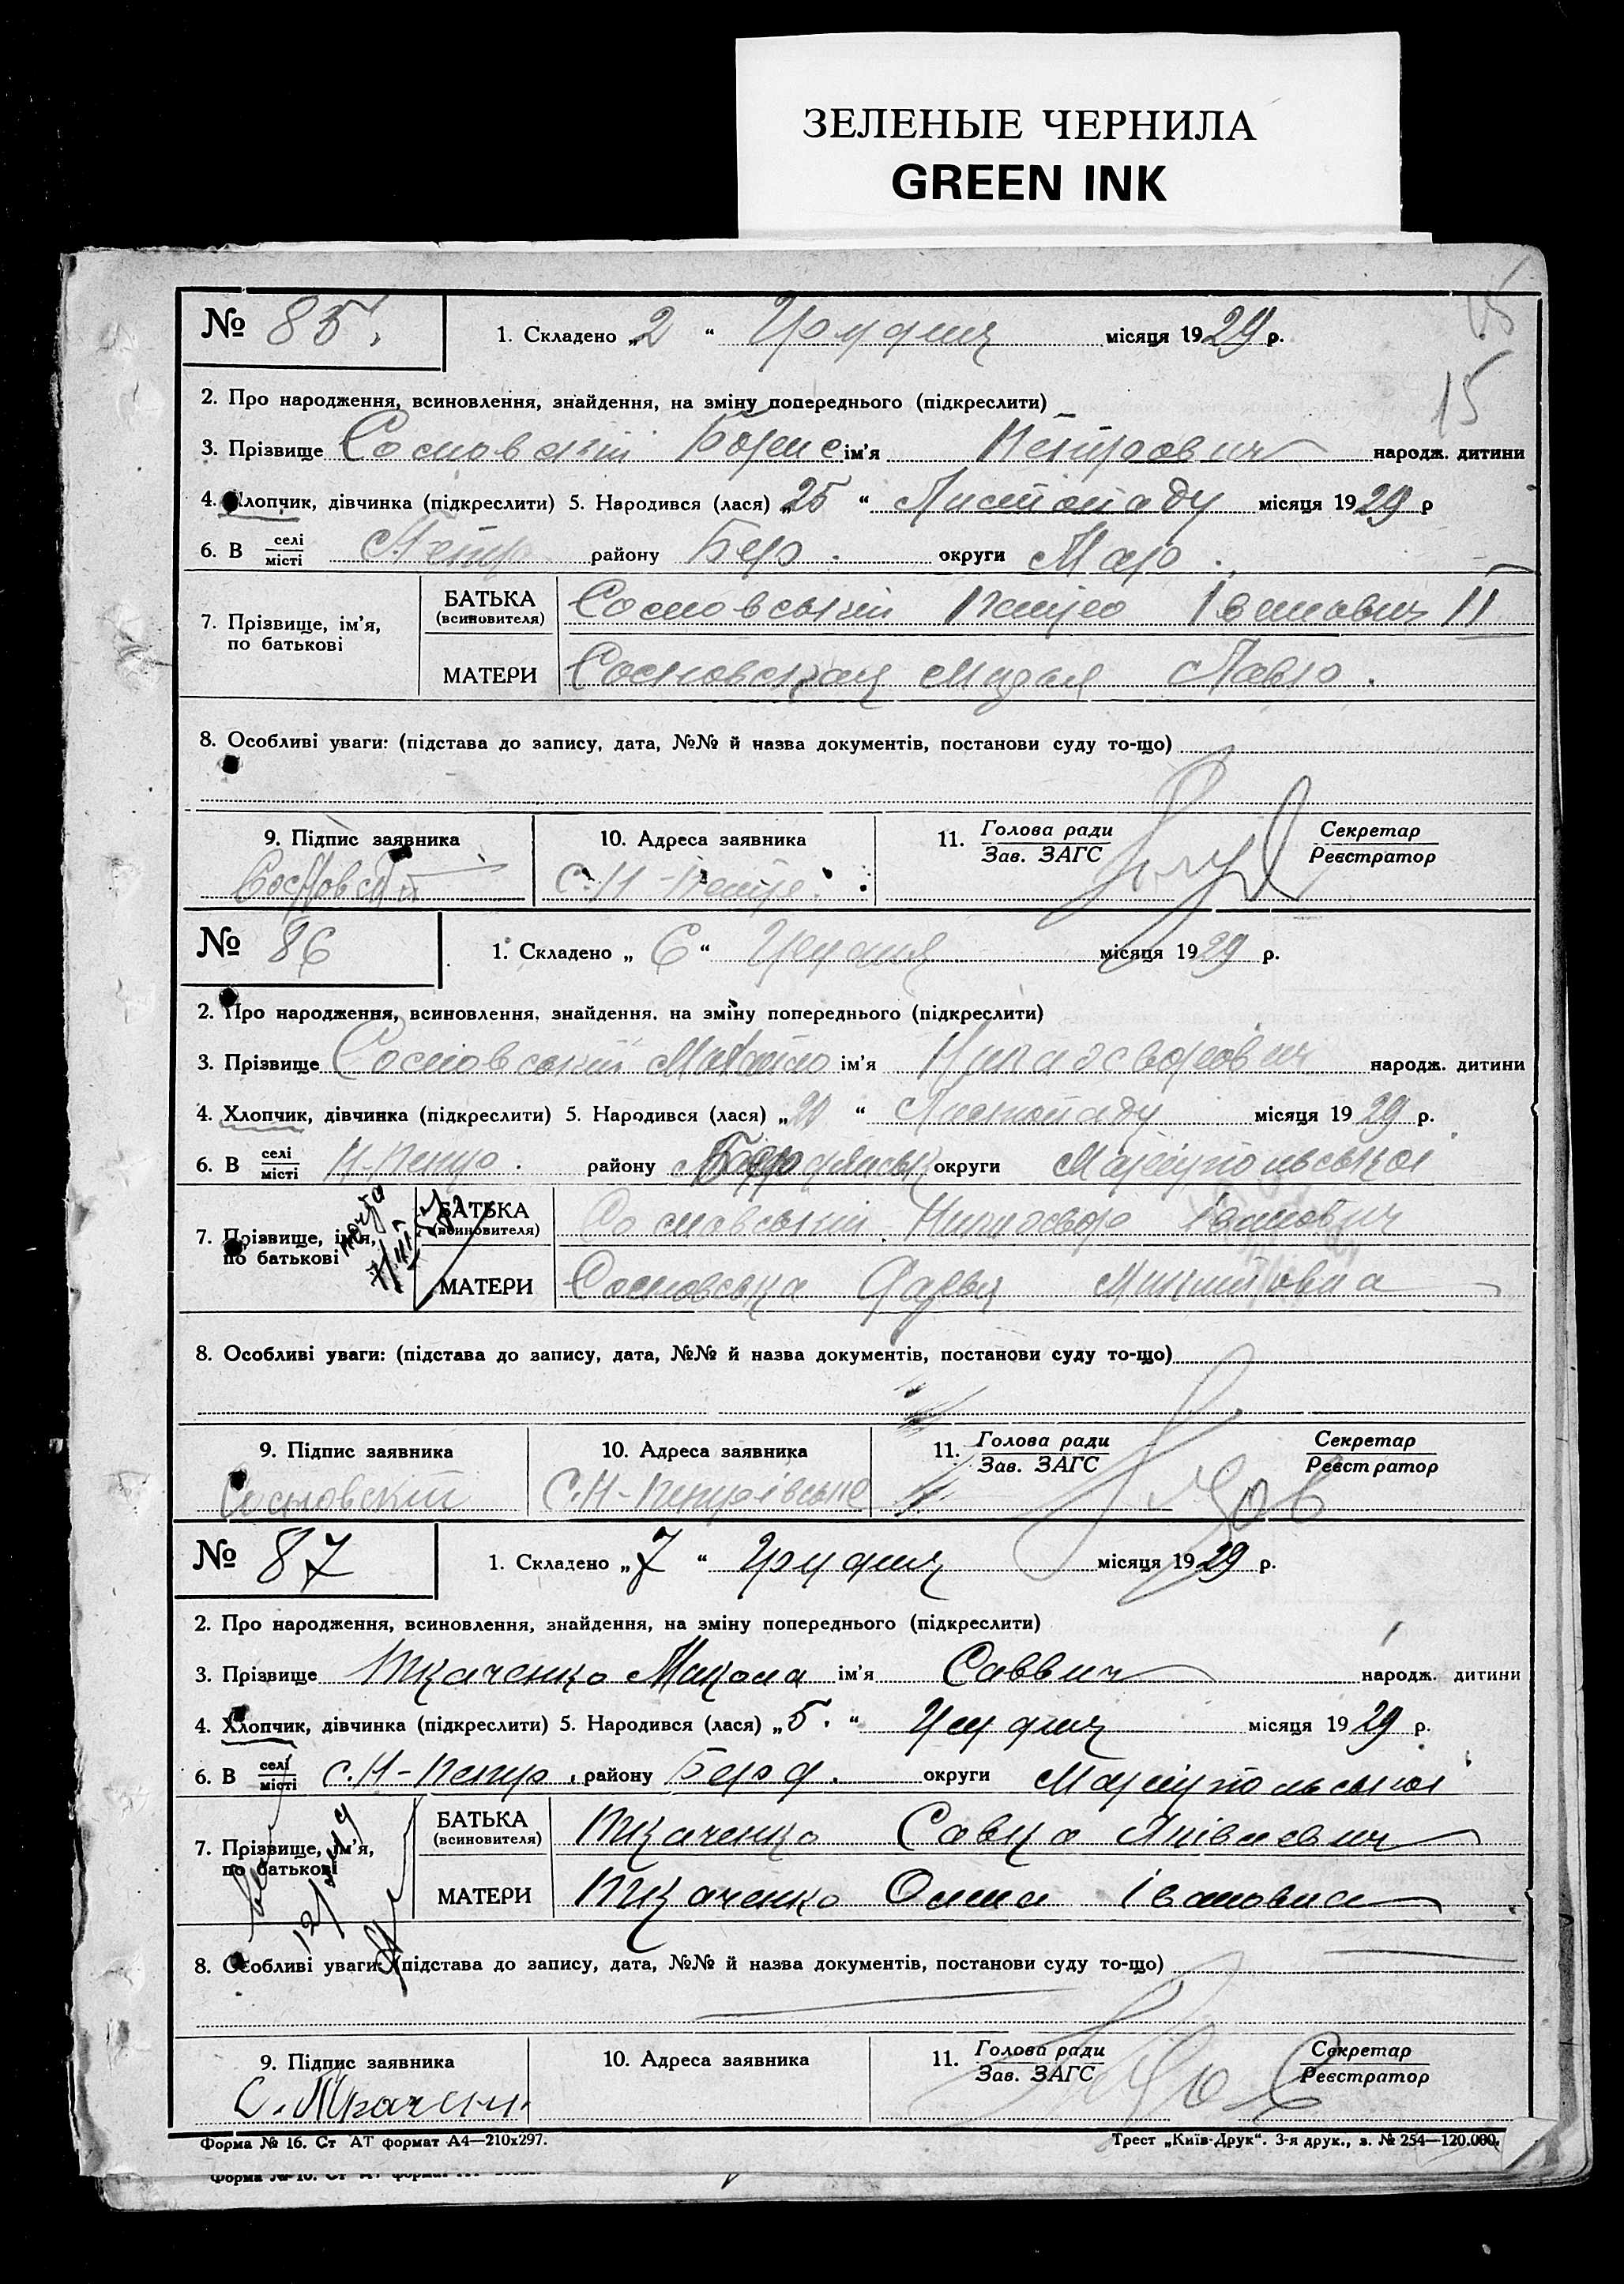 ЗЕЛЕНЫЕ ЧЕРНИЛА
GREEN INK
15
№ 85. 1. Складено „2“ Грудня місяця 1929 р.
15
2. Про народження, всиновлення, знайдення, на зміну попереднього (підкреслити)
3. Прізвище Сосновський Борис ім'я Петрович народж. дитини
4. Хлопчик, дівчинка (підкреслити) 5. Народився (лася) „25“ Листопаду місяця 1929 р
6. В селі місті району Бер. округи Мар.
7. Прізвище, ім'я, по батькові БАТЬКА (всиновителя) Сосновський Петро Іванович II
МАТЕРИ Сосновская Павло.
8. Особливі уваги: (підстава до запису, дата, №№ й назва документів, постанови суду то-що)
9. Підпис заявника 10. Адреса заявника 11. Голова ради Зав. ЗАГС Секретар Реєстратор
Сосновский С.Н-Петр.
№ 86 1. Складено „6“ Грудня місяця 1929 р.
2. Про народження, всиновлення, знайдення, на зміну попереднього (підкреслити)
3. Прізвище Сосновський Михайло ім'я народж. дитини
4. Хлопчик, дівчинка (підкреслити) 5. Народився (лася) „20“ Листопаду місяця 1929 р.
6. В селі місті Н-Петро. району округи Маріупольської
7. Прізвище, ім'я, по батькові БАТЬКА (всиновителя) Сосновський Іванович
МАТЕРИ Сосновська Дарья Микитовна
8. Особливі уваги: (підстава до запису, дата, №№ й назва документів, постанови суду то-що)
9. Підпис заявника 10. Адреса заявника 11. Голова ради Зав. ЗАГС Секретар Реєстратор
Сосновский С.Н-Петрівське
№ 87 1. Складено „7“ Грудня місяця 1929 р.
2. Про народження, всиновлення, знайдення, на зміну попереднього (підкреслити)
3. Прізвище Ткаченко Микола ім'я Саввич народж. дитини
4. Хлопчик, дівчинка (підкреслити) 5. Народився (лася) „5.“ Грудня місяця 1929 р.
6. В селі місті с.Н-Петро. району Берд. округи Маріупольської
7. Прізвище, ім'я, по батькові БАТЬКА (всиновителя) Ткаченко Савка
МАТЕРИ Ткаченко Олена Івановна
8. Особливі уваги: (підстава до запису, дата, №№ й назва документів, постанови суду то-що)
9. Підпис заявника 10. Адреса заявника 11. Голова ради Зав. ЗАГС Секретар Реєстратор
С. Ткаченк.
Форма № 16. Ст АТ формат А4—210х297. Трест „Київ-Друк“. 3-я друк., з. № 254—120.000.